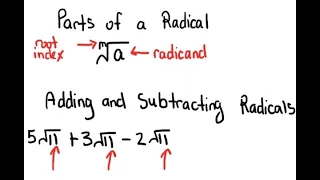 Parts of a Radical
root index → ᵐ√a ← radicand
Adding and Subtracting Radicals
5√11 + 3√11 − 2√11